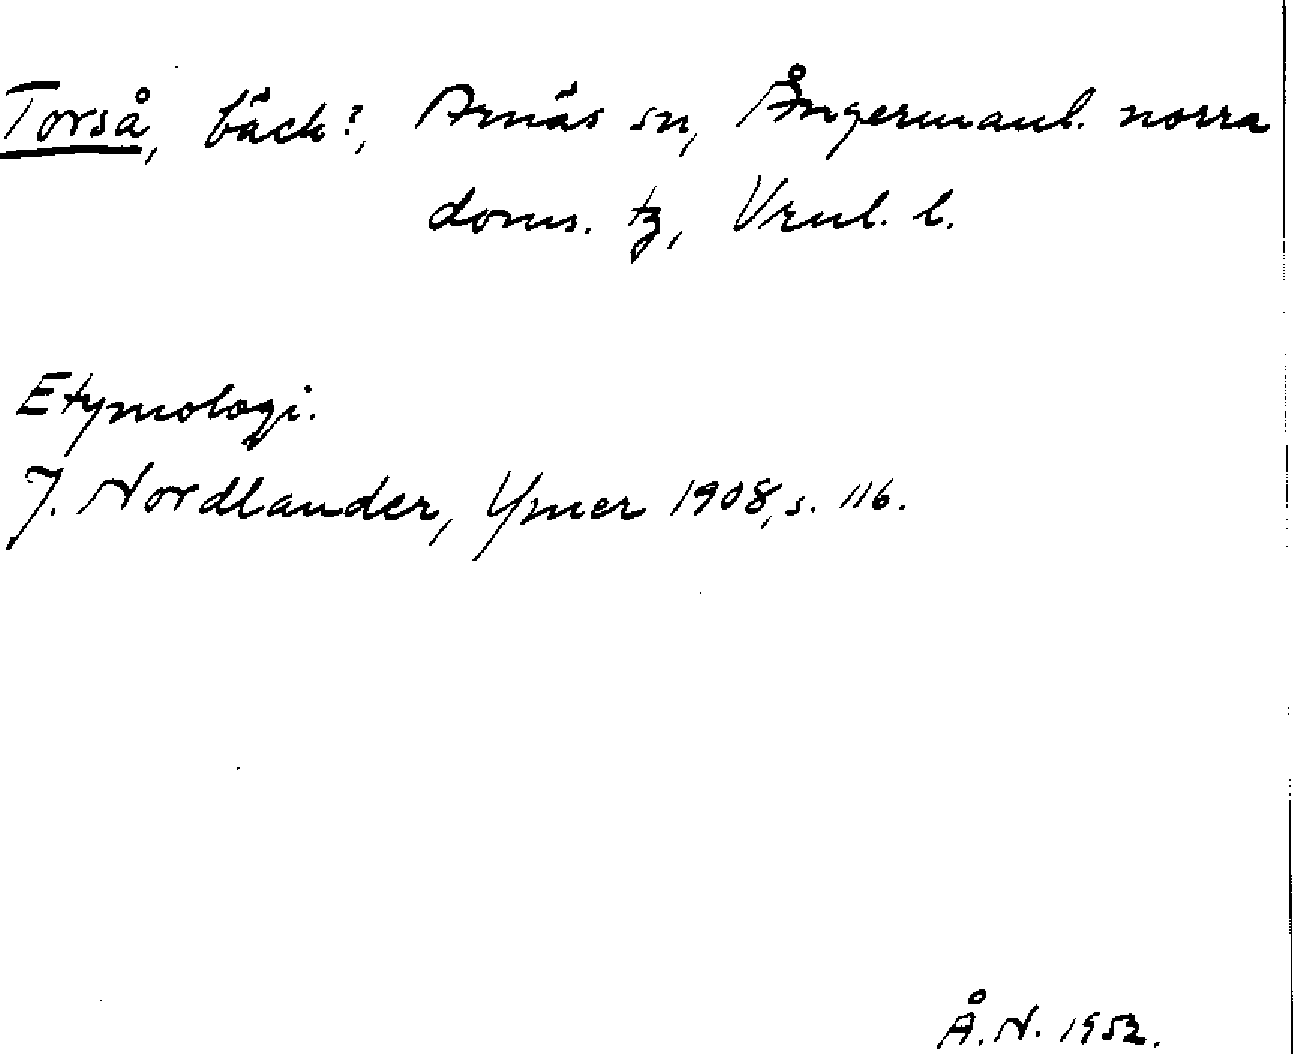 Torså, bäck?, Arnäs sn, Ångermanl. norra
doms. tg, Vrnl. l.
Etymologi.
J. Nordlander, Ymer 1908, s. 116.
Å. N. 1952.